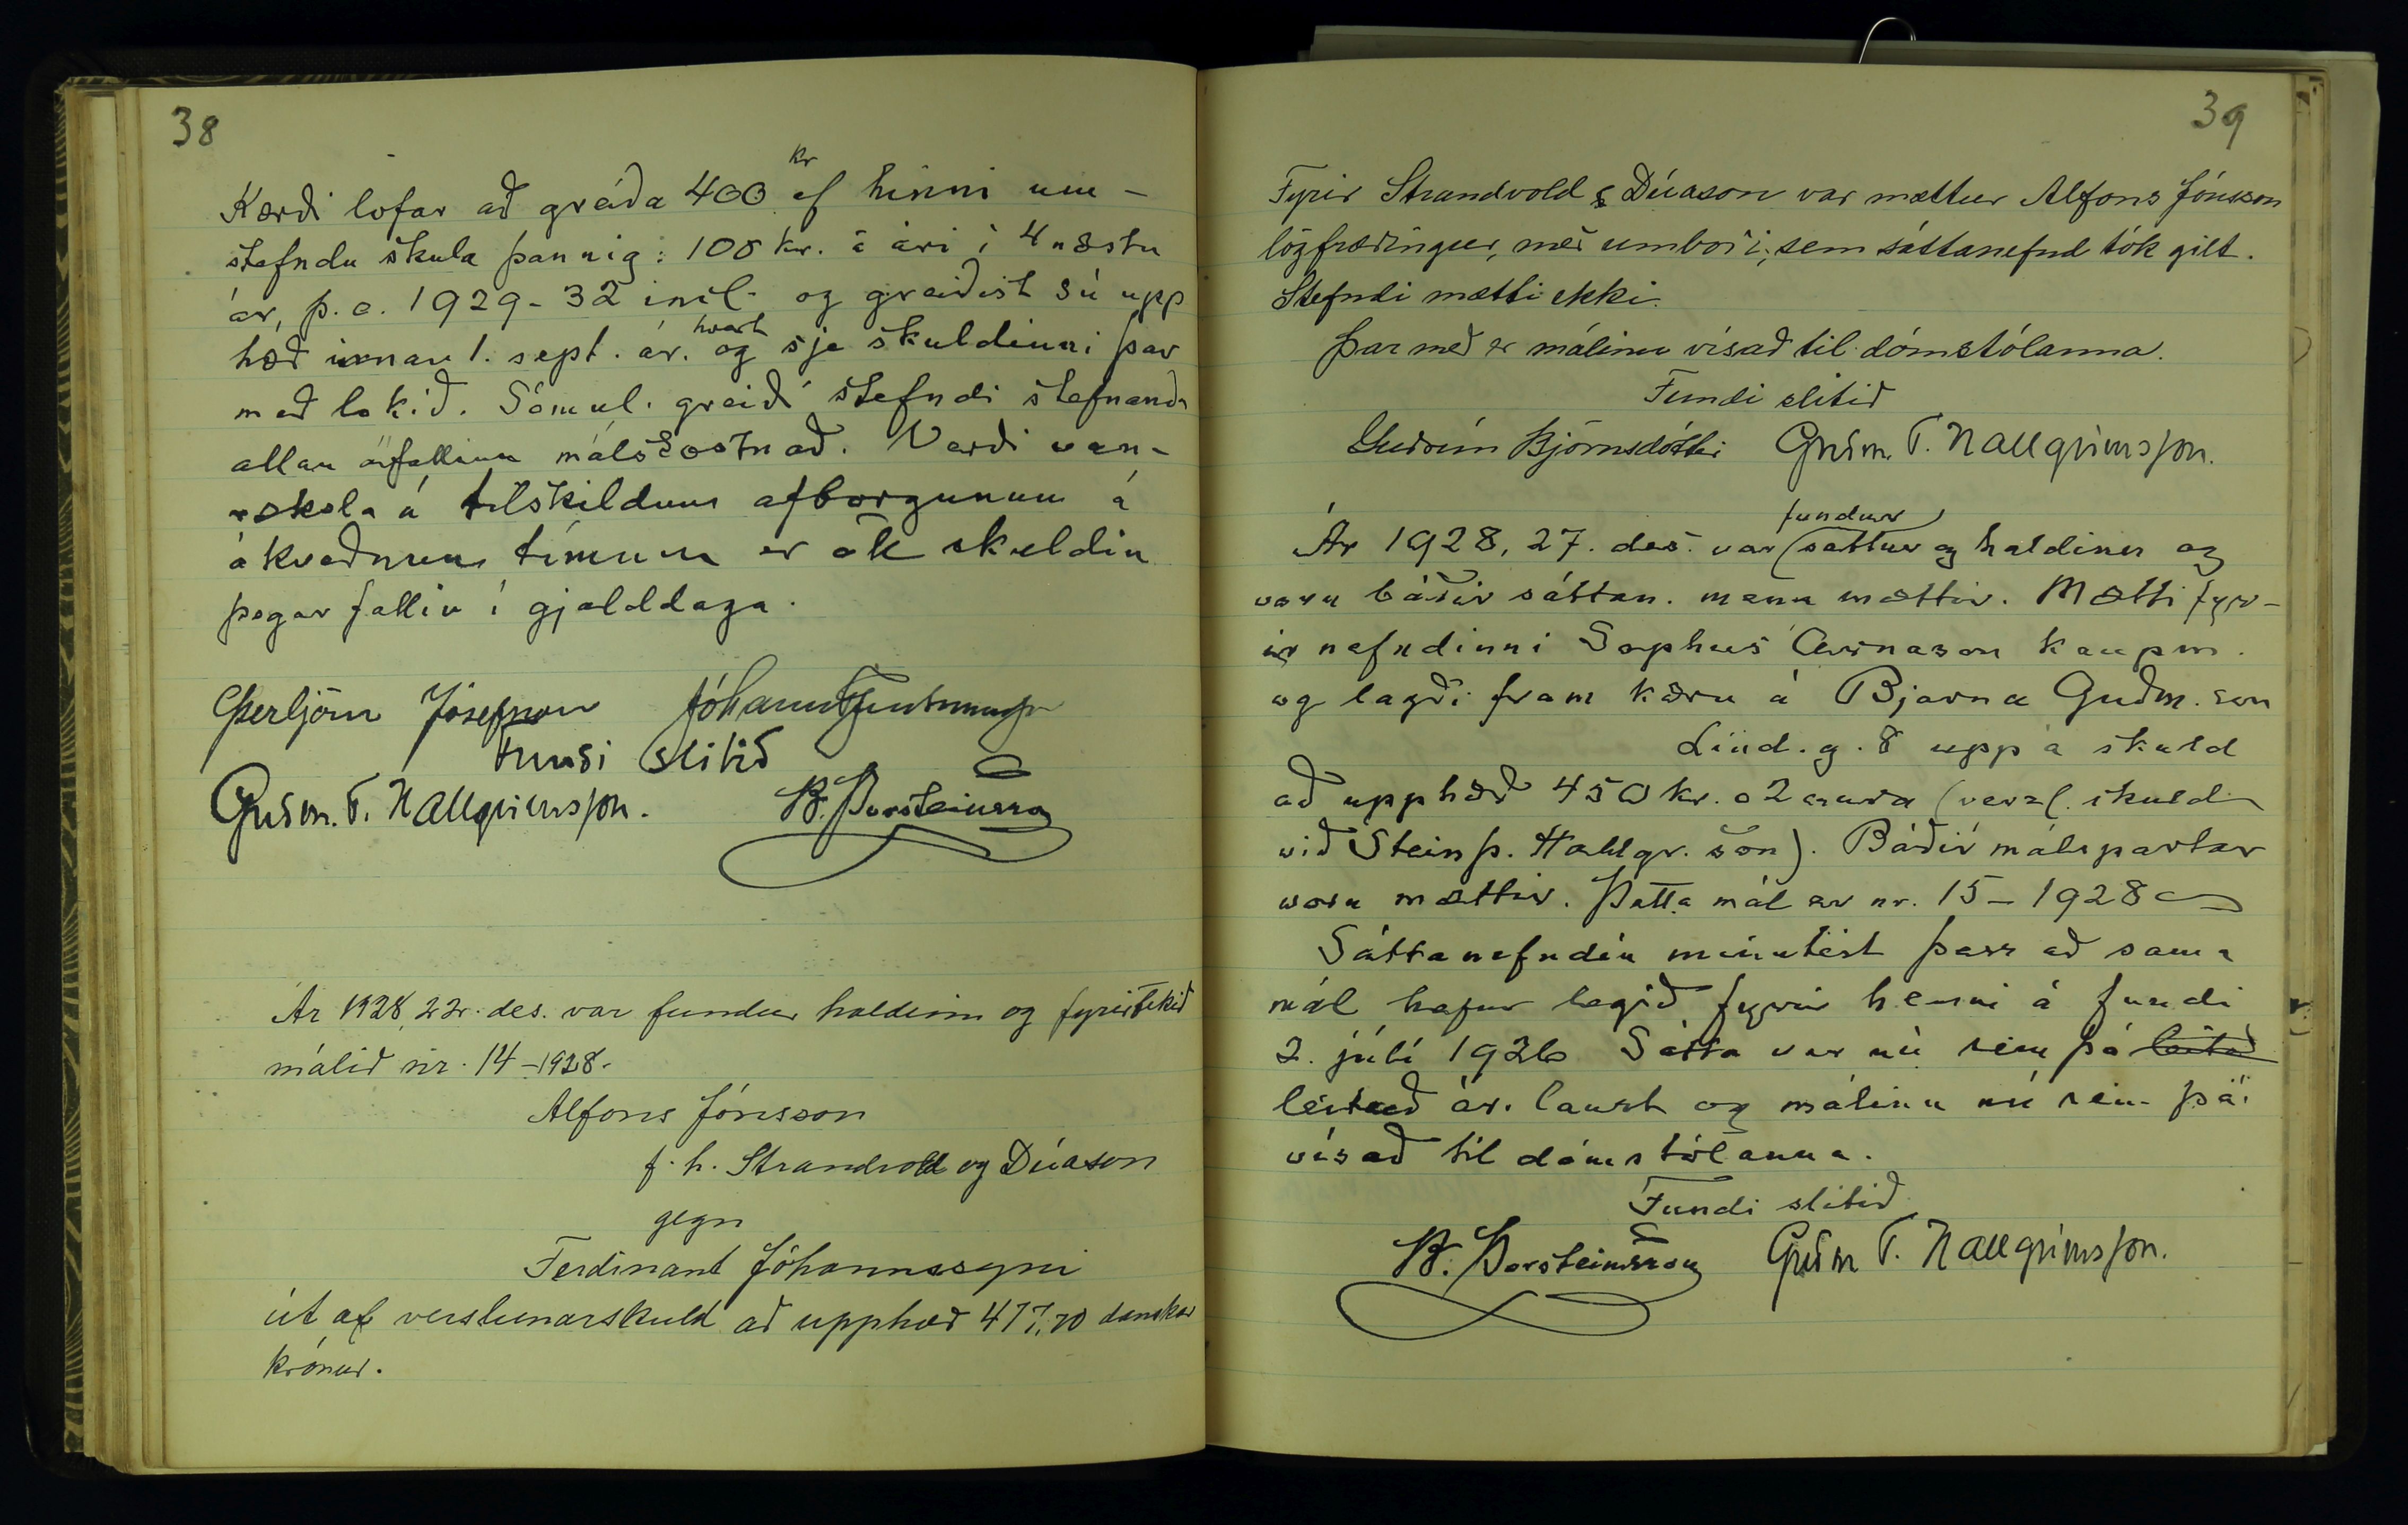 38
Kærði lofar að greiða 400 kr af hinni um-
stefndu skuld þannig: 100 kr. á ári í 4 næstu
ár, þ. e. 1929-32 incl. og greiðist sú upp
hæð innan 1. sept. ár. hvert og sje skuldinni þar
með lokið. Sömul. greiði stefndi stefnanda
allan áfallinn málskostnað. Verði van-
skela á tilskildum afborgunum á
ákveðnum tímum er öll skuldin
þegar fallin í gjalddaga.
Þerbjörn Jósefsson Jóhann
Fundi slitið
Guðm. T. Hallgrimsson. B. Þorsteinsson
Ár 1928, 22. des. var fundur haldinn og fyrirtekið
málið nr. 14-1928.
Alfons Jónsson
f. h. Strandvold og Dúason
gegn
Ferdinant Jóhannssyni
út af verslunarskuld að upphæð 477,70 danskar
krónur.
39
Fyrir Strandvold & Dúason var mættur Alfons Jónsson
lögfræðingur, með umboði, sem sáttanefnd tók gilt.
Stefndi mætti ekki.
Þar með er málinu vísað til dómstólanna.
Fundi slitið
Guðrún Björnsdóttir Guðm. T. Hallgrimsson.
Ár 1928, 27. des. var fundur settur og haldinn og
voru báðir sáttan. menn mættir. Mætti fyr-
ir nefndinni Sophus Árnason kaupm.
og lagði fram kæru á Bjarna Guðm.son
Lind.g. 8 upp á skuld
að upphæð 450 kr. 02 aura (verzl. skuld
við Steinþ. Hallgr. son). Báðir málspartar
voru mættir. Þetta mál er nr. 15-1928
Sáttanefndin minntist þess að sama
mál hefur legið fyrir henni á fundi
2. júlí 1926 Sátta var nú sem þá leitað
leitað ár. laust og málinu nú sem þá
vísað til dómstólanna.
Fundi slitið
B. Þorsteinsson Guðm T. Hallgrimsson.